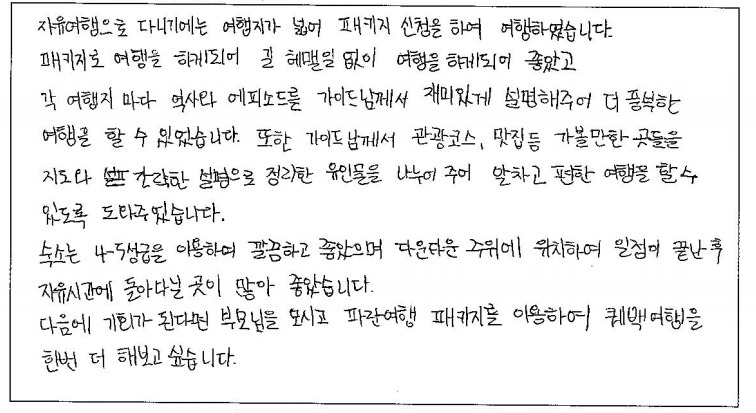 자유여행으로 다니기에는 여행지가 넓어 패키지 신청을 하여 여행하였습니다.
패키지로 여행을 하게되어 길 헤맬일 없이 여행을 하게되어 좋았고
각 여행지 마다 역사와 에피소드를 가이드님께서 재미있게 설명해주어 더 풍부한
여행을 할 수 있었습니다. 또한 가이드님께서 관광코스, 맛집등 가볼만한 곳들을
지도와 간략한 설명으로 정리한 유인물을 나누어 주어 알차고 편한 여행을 할 수
있도록 도와주었습니다.
숙소는 4-5성급을 이용하여 깔끔하고 좋았으며 다운타운 주위에 위치하여 일정이 끝난 후
자유시간에 돌아다닐 곳이 많아 좋았습니다.
다음에 기회가 된다면 부모님을 모시고 파란여행 패키지를 이용하여 퀘벡여행을
한번 더 해보고 싶습니다.